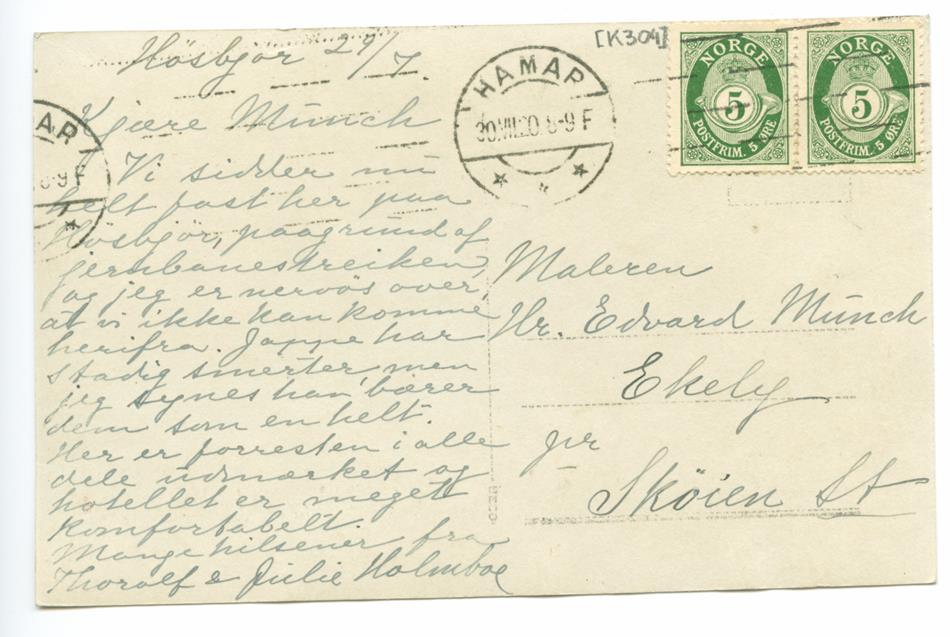 [K304]
Hösbjør 29/7.
HAMAR
30.VII.20.8-9 F
NORGE
5
POSTFRIM. 5 ØRE
NORGE
5
POSTFRIM. 5 ØRE
AR
8-9 F
Kjære Munch
Vi sidder nu
helt fast her paa
Hösbjör, paagrund af
jernbanestreiken,
og jeg er nervös over,
at vi ikke kan komme
herifra. Jappe har
stadig smerter men
jeg synes han bærer
dem som en helt.
Her er forresten i alle
dele udmærket og
hotellet er meget
komfortabelt.
Mange hilsener fra
Thorolf & Julie Holmboe
Maleren
Hr. Edvard Munch
Ekely
pr
Skøien St